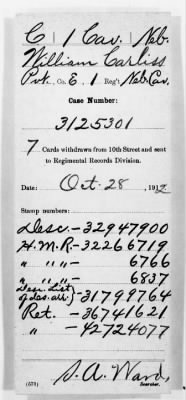 C | 1 Cav. | Neb.
William Carliss
Pvt., Co. E, 1 Reg't Neb. Cav.
Case Number:
3125301
7 Cards withdrawn from 10th Street and sent
to Regimental Records Division.
Date: Oct. 28, 1912
Stamp numbers:
Desc. - 32947900
H.M.R. - 32266719
" " " " - 6766
" " " " - 6837
Desc. List
of des. arr. } - 31799764
Ret. - 36741621
" - 42724077
S. A. Ward,
Searcher.
(673)